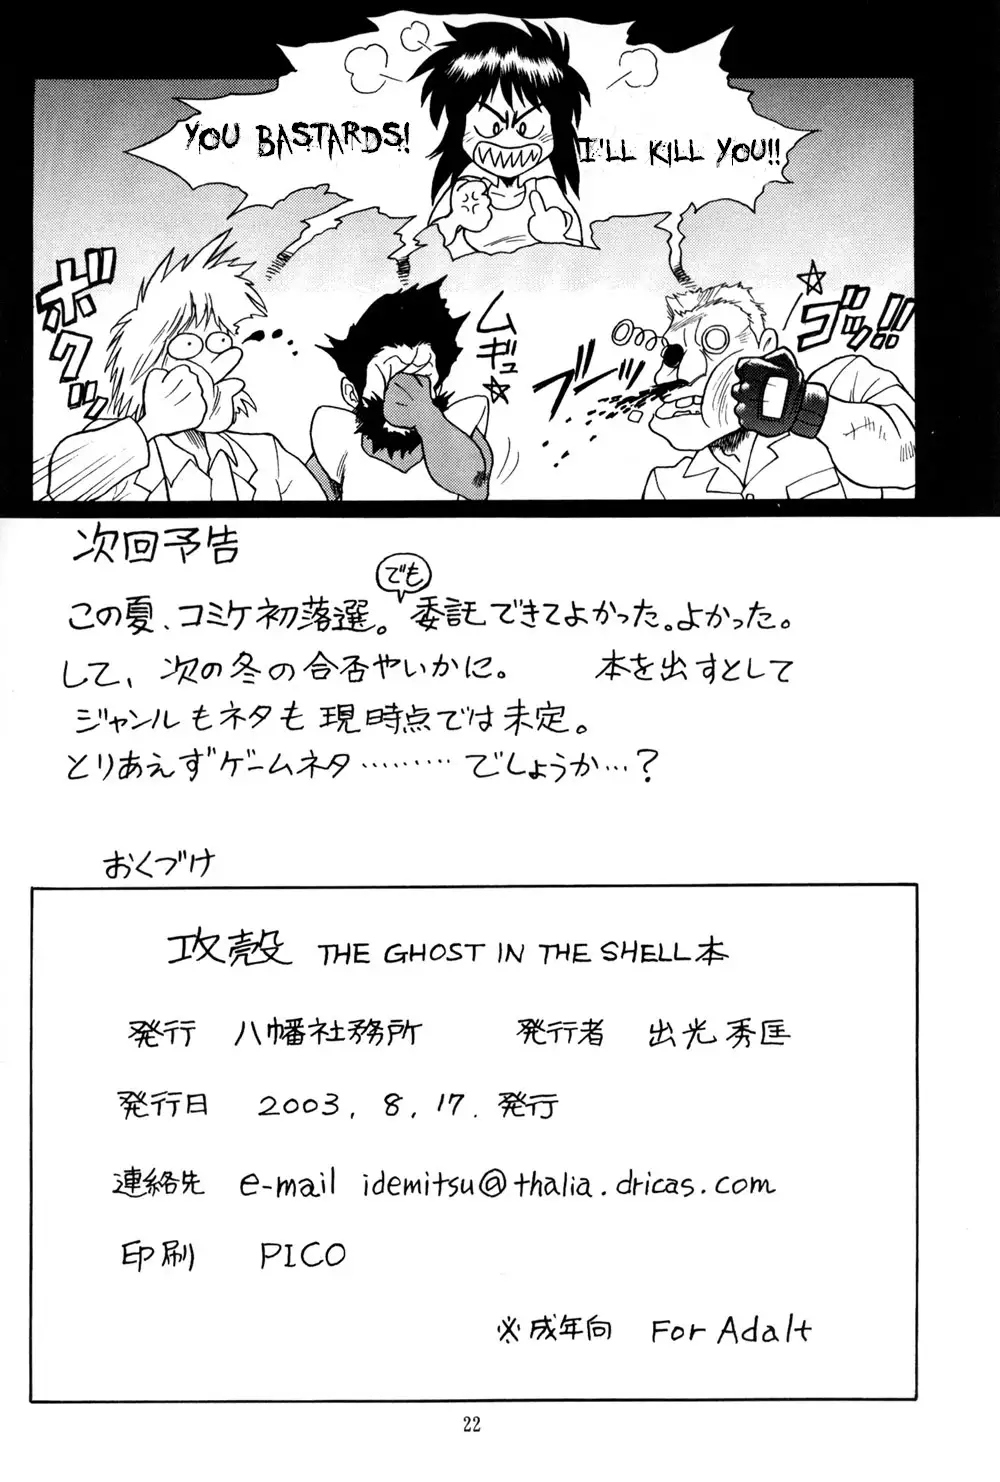 YOU BASTARDS!
I'LL KILL YOU!!
ボクッ
ムギュ☆
ブーッ
ゴッ!!
次回予告
この夏、コミケ初落選。でも委託できてよかった。よかった。
して、次の冬の合否やいかに。 本を出すとして
ジャンルもネタも現時点では未定。
とりあえずゲームネタ………でしょうか…?
おくづけ
攻殻 THE GHOST IN THE SHELL本
発行 八幡社務所 発行者 出光秀匡
発行日 2003. 8. 17. 発行
連絡先 e-mail idemitsu@thalia.dricas.com
印刷 PICO
※成年向 For Adalt
22